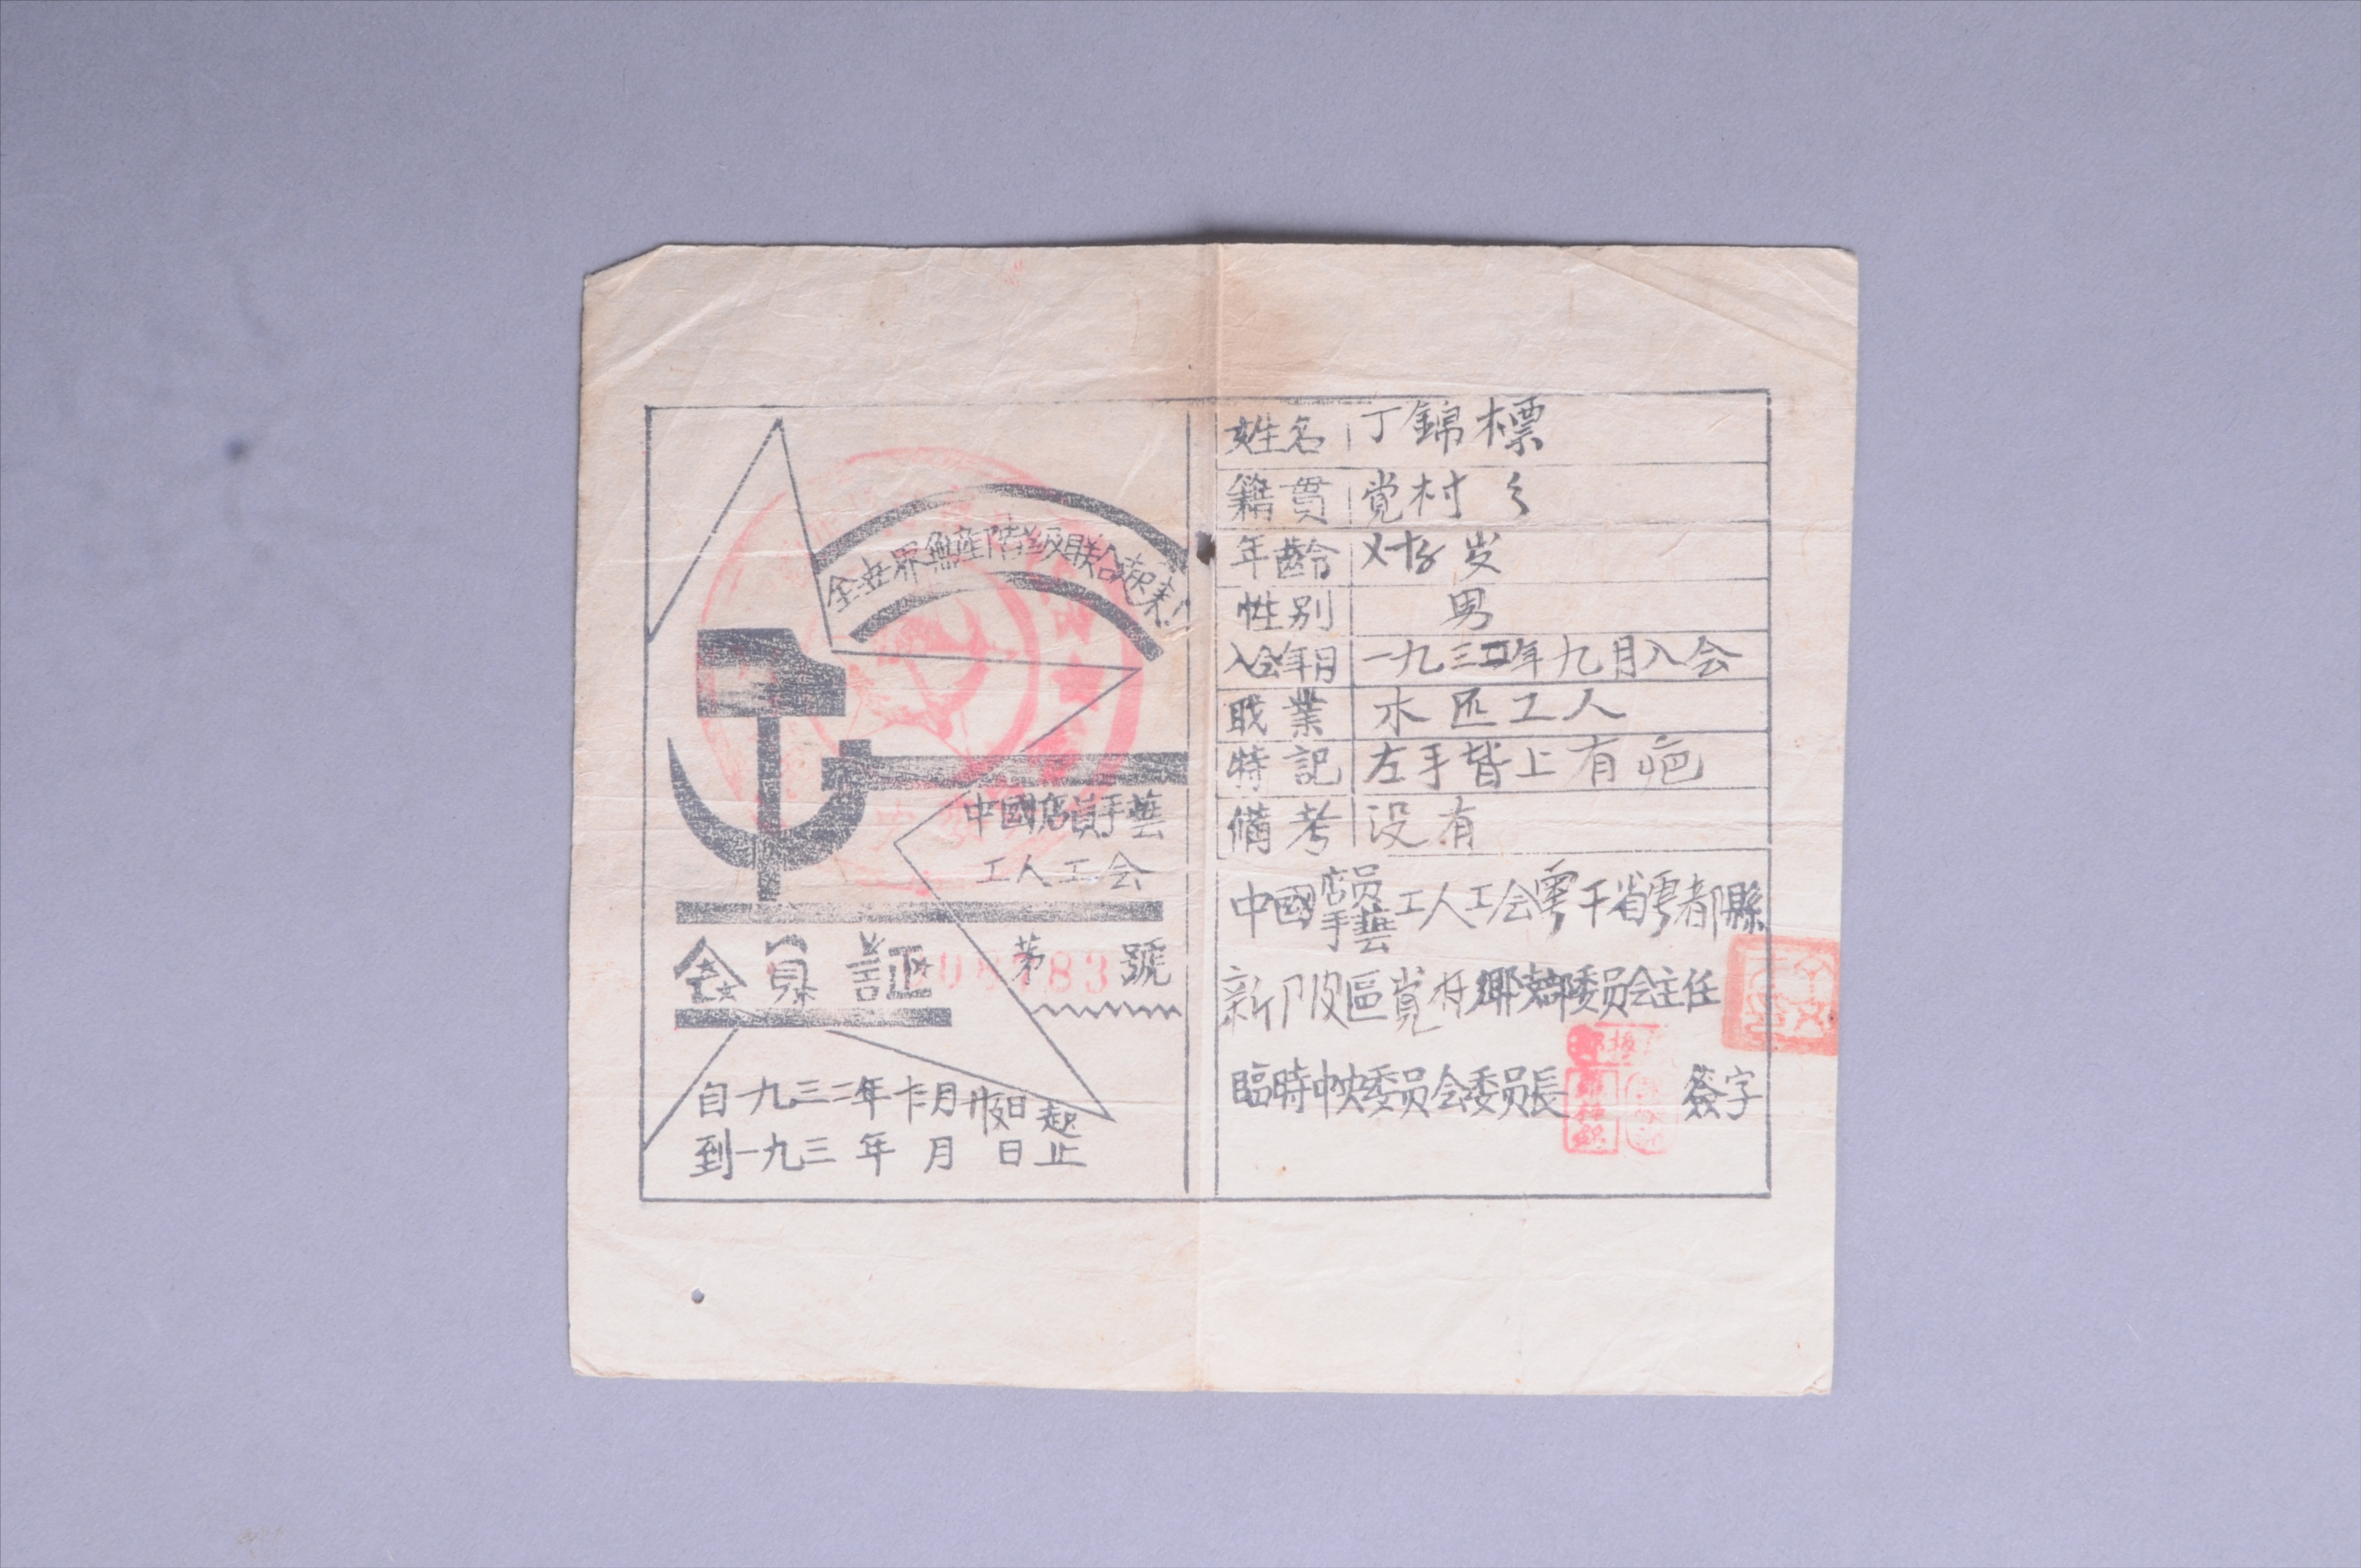 全世界無産階級联合起来!
中國店員手藝
工人工会
会員証
第 83 號
自一九三二年 月 日起
到一九三 年 月 日止
姓名 丁錦標
籍貫 覚村
年齡 岁
性别 男
入会年月 一九三 年九月入会
职業 木匠工人
特記 左手背上有疤
備考 没有
中國店员手藝工人工会雩 省雩都縣
新陂區覚村鄉支部委员会主任
臨時中央委员会委员長 簽字